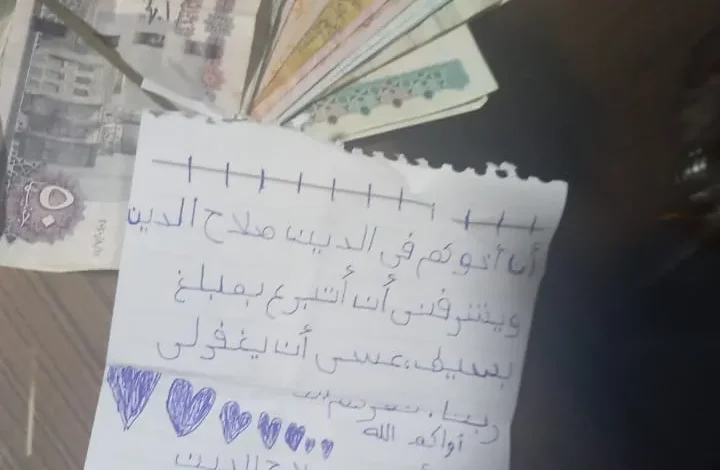 ٥٠
أنا أخوكم في الدين صلاح الدين
ويشرفني أن أتبرع بمبلغ
بسيط، عسى أن يغفرلي
ربنا،
أواكم الله
صلاح الدين